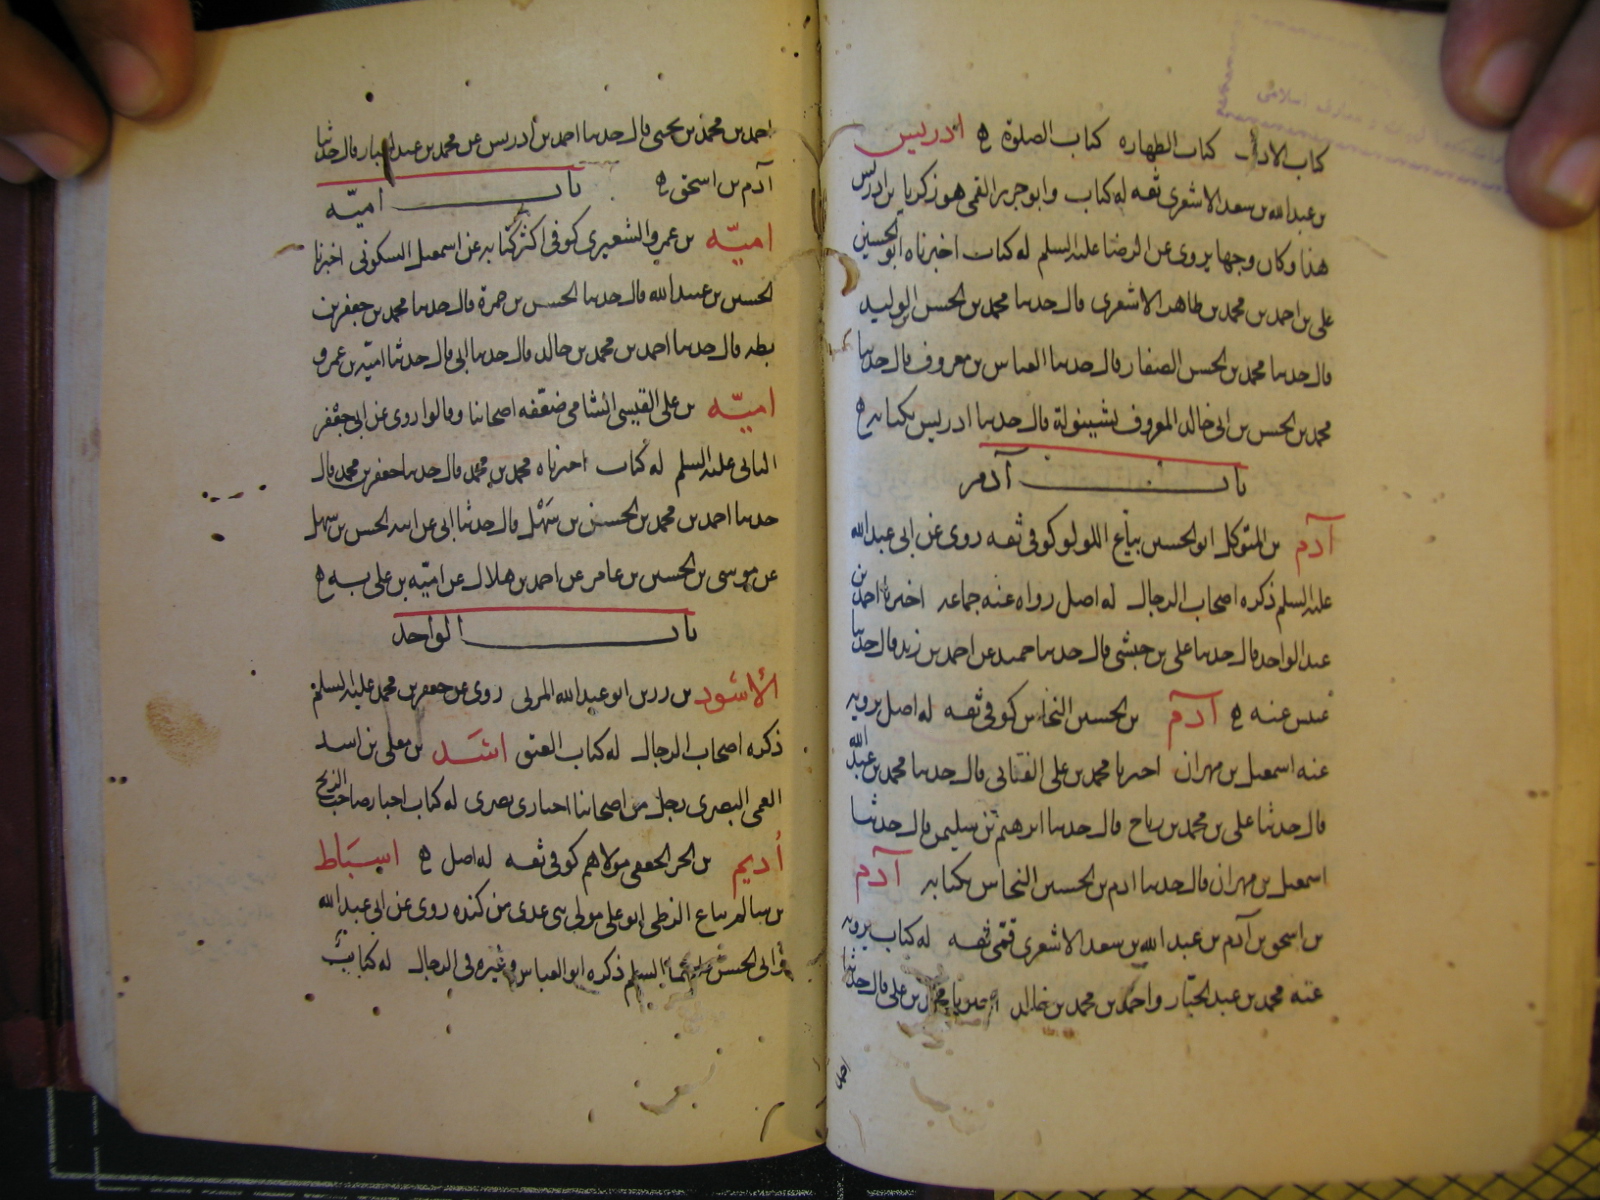 كتاب الاداب كتاب الطهاره كتاب الصلوة ادريس
بن عبدالله بن سعد الاشعرى ثقه له كتاب وابو جرير القمى هو زكريا بن ادريس
هذا وكان وجها يروى عن الرضا عليه السلم له كتاب اخبرناه ابو الحسين
على بن احمد بن محمد بن طاهر الاشعرى قال حدثنا محمد بن الحسن الوليد
قال حدثنا محمد بن الحسن الصفار قال حدثنا العباس بن معروف قال حدثنا
محمد بن الحسن بن ابى خالد المعروف بشينولة قال حدثنا ادريس بكتابه
باب آدم
آدم بن المتوكل ابو الحسين بياع اللولو كوفى ثقه روى عن ابى عبدالله
عليه السلم ذكره اصحاب الرجال له اصل رواه عنه جماعه اخبرنا احمد بن
عبد الواحد قال حدثنا على بن حبشى قال حدثنا حميد عن احمد بن زيد قال حدثنا
عبيس عنه آدم بن الحسين النخاس كوفى ثقه له اصل يرويه
عنه اسمعيل بن مهران اخبرنا محمد بن على القنانى قال حدثنا محمد بن عبد الله
قال حدثنا على بن محمد بن رباح قال حدثنا ابرهيم بن سليمن قال حدثنا
اسمعيل بن مهران قال حدثنا ادم بن الحسين النخاس بكتابه آدم
بن اسحق بن آدم بن عبد الله بن سعد الاشعرى قمّى ثقه له كتاب يرويه
عنه محمد بن عبد الجبّار واحمد بن محمد بن خالد اخبرنا محمد بن على قال حدثنا
احمد
احمد بن محمد بن يحيى قال حدثنا احمد بن أدريس عن محمد بن عبد الجبار قال حدثنا
آدم بن اسحق
باب اميّه
اميّه بن عمرو الشعيرى كوفى اكثر كتابه عن اسمعيل السكونى اخبرنا
الحسين بن عبيد الله قال حدثنا الحسن بن حمزة قال حدثنا محمد بن جعفر بن
بطه قال حدثنا احمد بن محمد بن خالد قال حدثنا ابى قال حدثنا اميّه بن عمرو
اميّه بن على القيسى الشامى ضعّفه اصحابنا وقالوا روى عن ابى جعْفر
الثانى عليه السلم له كتاب اخبرناه محمد بن محمد قال حدثنا جعفر بن محمد قال
حدثنا احمد بن محمد بن الحسين بن سَهْل قال حدثنا ابى عن ابيه الحسن بن سهل
عن موسى بن الحسين بن عامر عن احمد بن هلال عن اميّه بن على به
باب الواحد
الأسْود بن رزين ابو عبدالله المزنى روى عن جعفر بن محمد عليه السلم
ذكره اصحاب الرجال له كتاب العتق اسَد بن معلى بن اسد
العمى البصرى رجل من اصحابنا اخبارى بصرى له كتاب اخبار صاحب الزنج
أديم بن الحر الجعفى مولاهم كوفى ثقه له اصل اسبَاط
بن سالم بياع الزطى ابو على مولى بنى عدى من كنده روى عن ابى عبدالله
وابى الحسن عليهما السلم ذكره ابو العباس وغيره فى الرجال له كتابٌ